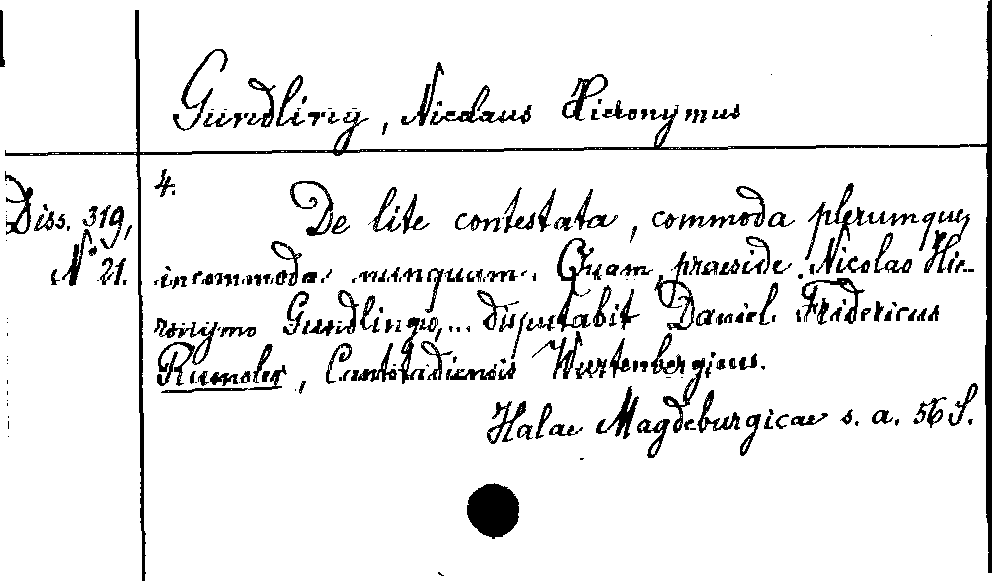 Gundling, Nicolaus Hieronymus
4.
Diss. 319,
N° 21.
De lite contestata, commoda plerumque,
incommoda nunquam. Quam, praeside Nicolao Hie-
ronymo Gundlingio,... disputabit Daniel Fridericus
Rumeler, Cantstadiensis Wurtenbergicus.
Halae Magdeburgicae s. a. 56 S.